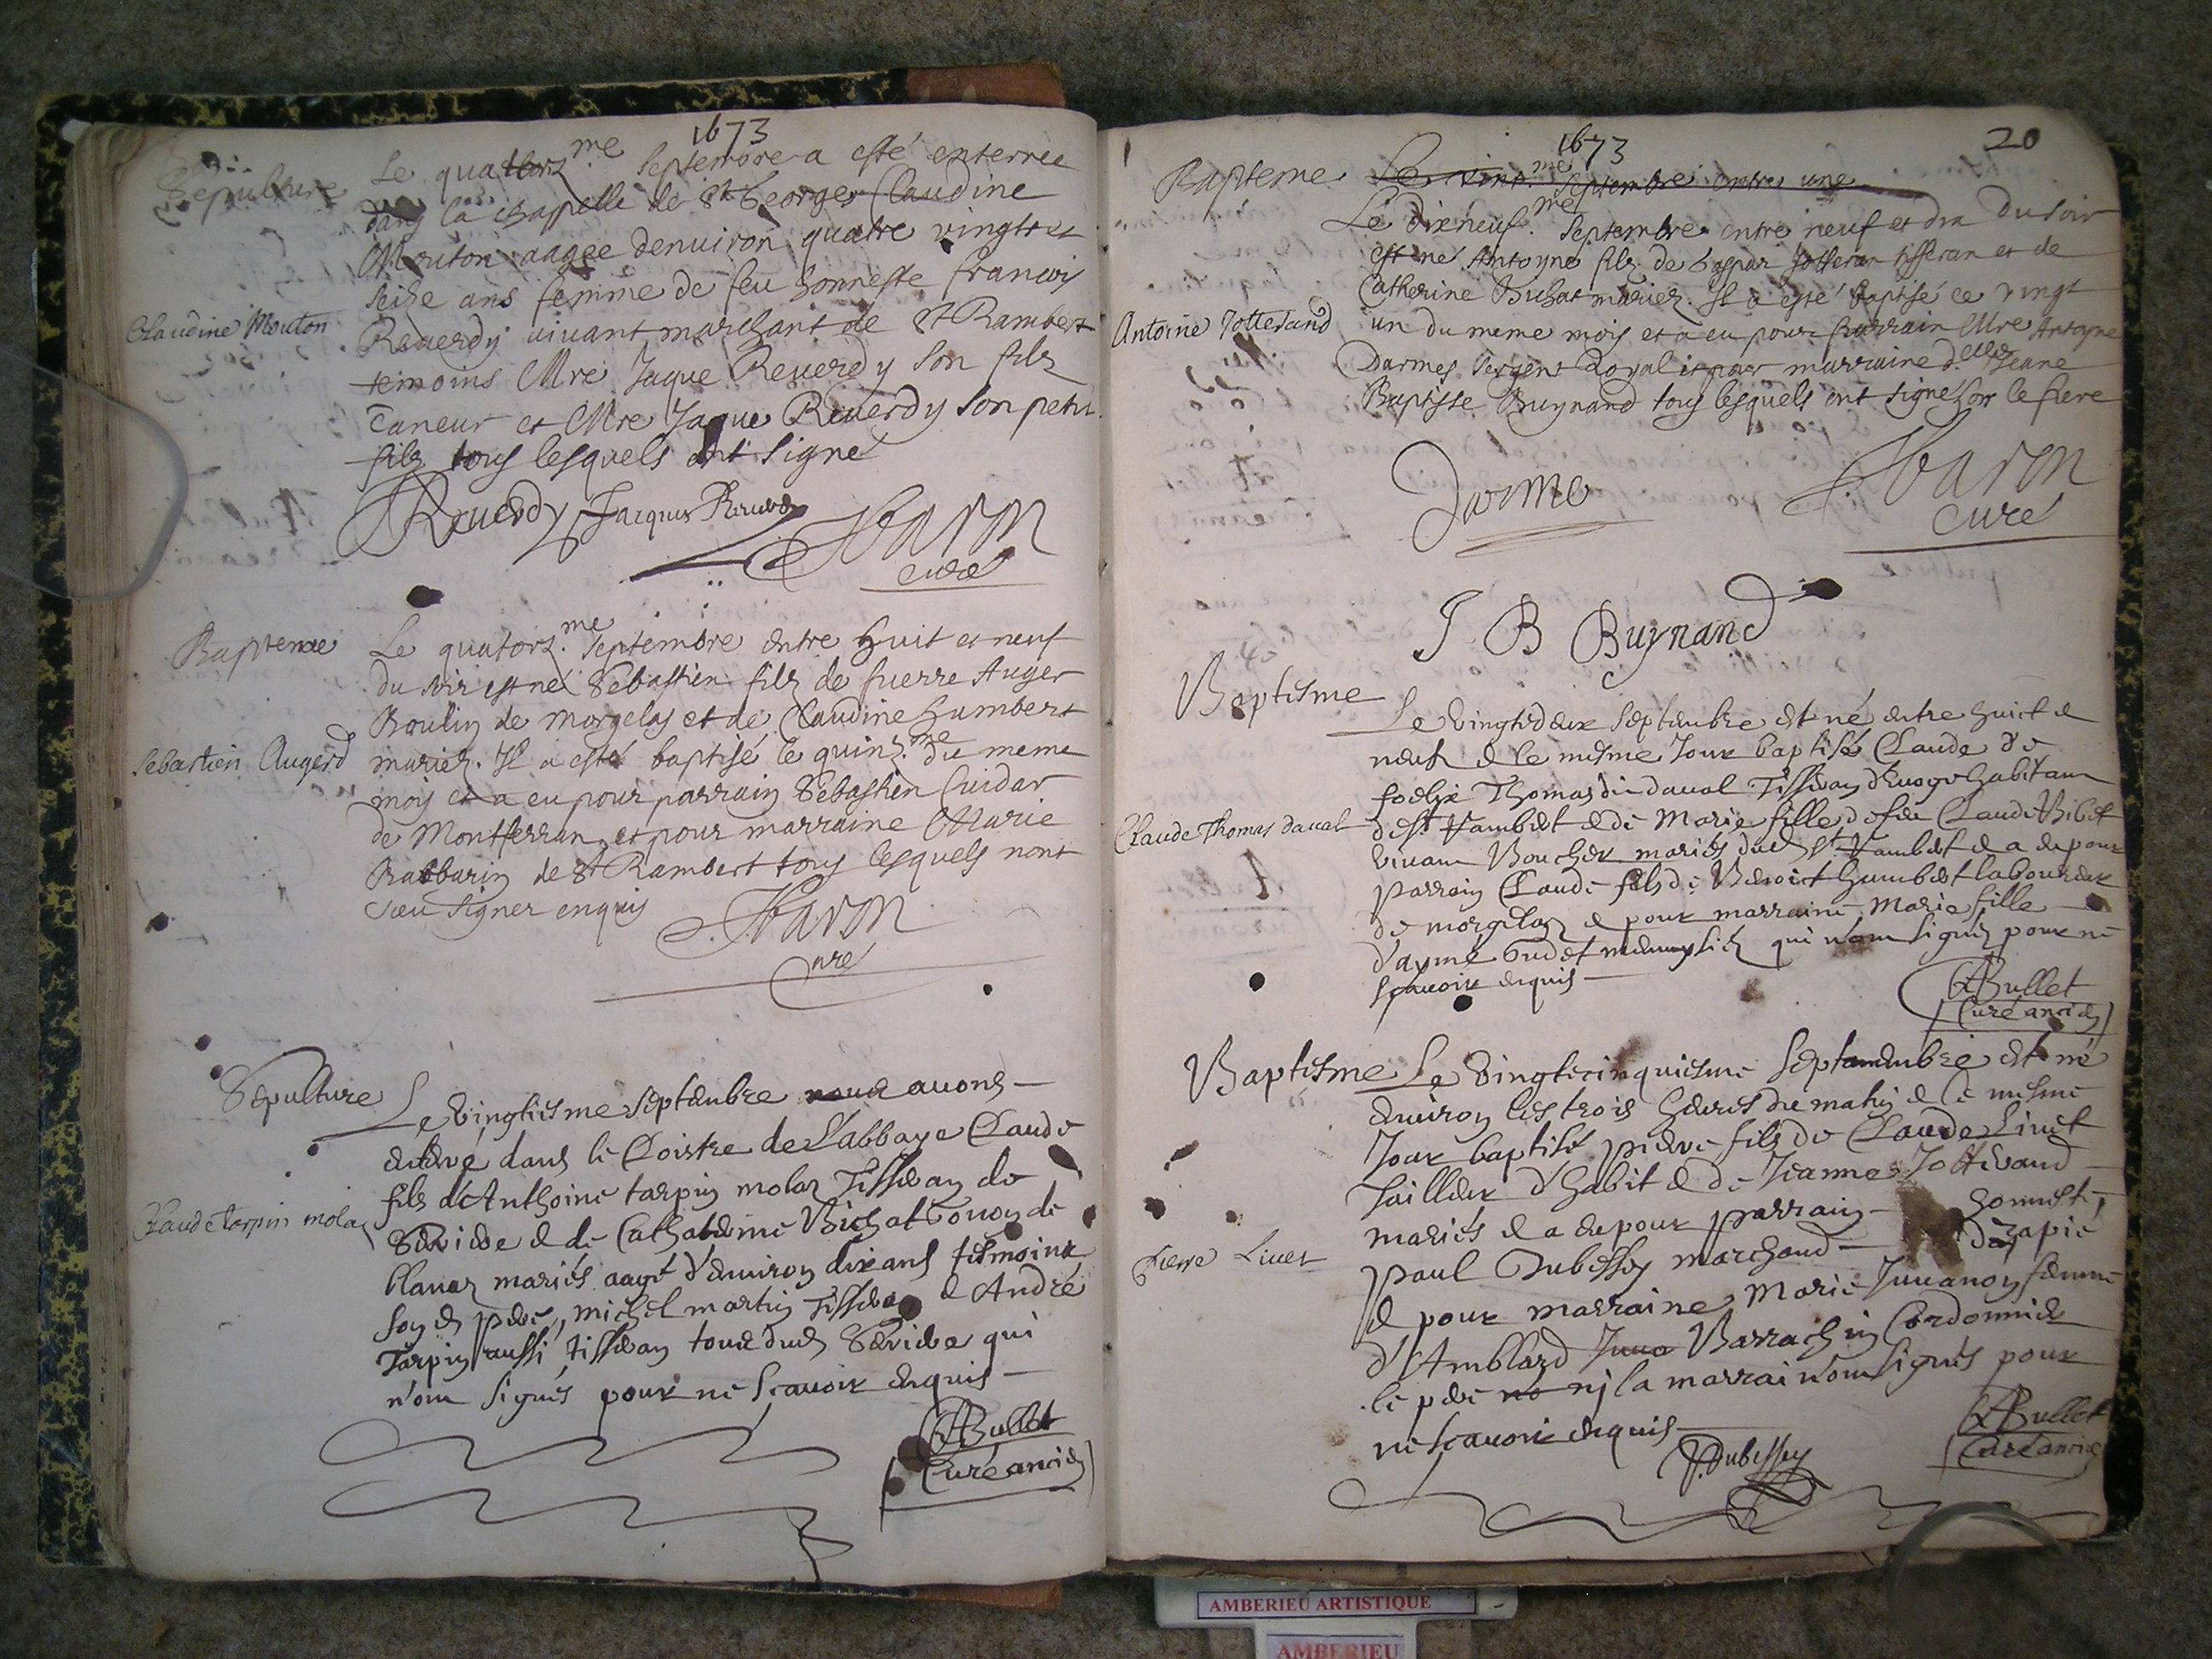 1673
Sepulture
Le quatorz.me Septembre a esté enterrée
dans la chapelle de St George Claudine
Mouton aagee denuiron quatre vingt et
seize ans femme de feu honneste francois
Claudine Mouton
Reuerdy uiuant marchant de St Rambert
temoins Mre Jaque Reuerdy son filz
Taneur et Mre Jaque Reuerdy son petit
filz tous lesquels ont signé
Reuerdy Jacques Reuerdy
Baron
curé
Bapteme
Le quatorz.me Septembre entre huit et neuf
du soir est né Sebastien filz de pierre Auger
Boulin de morgelas et de Claudine humbert
Sebastien Augerd
mariez. Il a esté baptisé le quinz.me du meme
mois et a eu pour parrain Sebastien Cuidar
de Montferran et pour marraine Marie
Rabbarin de St Rambert tous lesquels nont
sceu signer enquis
Baron
Curé
Sepulture
Le vingtiesme septembre nous auons
enterré dans le Cloistre de L'abbaye Claude
filz d'Anthoine tarpin molaz Tisseran de
Claude tarpin molaz
Serriere et de Catherine Bichat
blanaz mariés aagé d'enuiron dix ans tesmoins
sond pere, michel martin Tisseran et André
Tarpin aussi tisseran tous dud Serriere qui
n'ont signés pour ne scauoir enquis
Bullet
Curé ancien
1673
20
Bapteme
Le vint.me Septembre entre une
Le dixneuf.me Septembre entre neuf et dix du soir
est né Antoyne filz de Gaspar Jotteran tisseran et de
Catherine Bichat mariez. Il a esté baptisé ce vingt
Antoine Jotterand
un du meme mois et a eu pour parrain Mre Antoyne
Darmes sergent Royal et pour marraine d.elle Jeane
Baptiste Buynand tous lesquels ont signé hor le pere
Darme
Baron
curé
J B Buynand
Baptesme
Le vingtedeux Septembre est né entre huict e
neuf e le mesme Jour baptisé Claude de
foelix Thomas dit daual Tisseran habitant
Claude Thomas daual
de St Rambert e de Marie fille de feu Claude Bibet
viuant Boucher mariés dud St Rambert e a eu pour
parrain Claude fils de Benoict humbert laboureur
de morgelaz e pour marraine Marie fille
d'aymé qui n'ont signéz pour ne
scauoir enquis
Bullet
Curé ancien
Baptesme
Le vingtecinquiesme Septembre est né
enuiron les trois heures du matin e le mesme
Jour baptisé pierre fils de Claude Liuet
Tailleur d'habit e de Jeanne Jotterand
mariés e a eu pour parrain honneste
Pierre Liuet
paul Dubessey marchand drapié
e pour marraine Marie Juuanon femme
d'Amblard Juua Barrachin Cordonnier
le pere no nj la marrai n'ont signés pour
ne scauoir enquis
P. Dubessey
Bullet
Curé ancien
AMBERIEU ARTISTIQUE
AMBERIEU